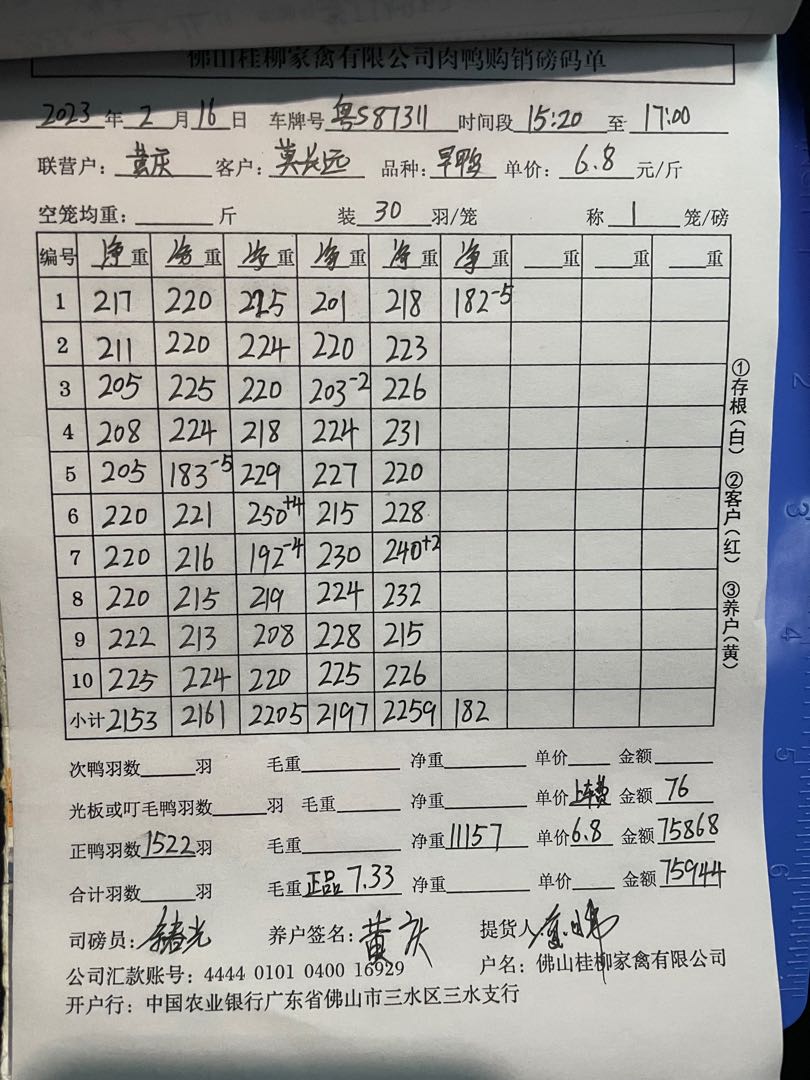 佛山桂柳家禽有限公司肉鸭购销磅码单
2023年 2 月 16 日 车牌号 粤S87311 时间段 15:20 至 17:00
联营户: 黄庆 客户: 莫长远 品种: 旱鸭 单价: 6.8 元/斤
空笼均重: 斤 装 30 羽/笼 称 1 笼/磅
编号 净重 净重 净重 净重 净重 净重 重 重 重
1 217 220 225 201 218 182-5
2 211 220 224 220 223
3 205 225 220 203-2 226
4 208 224 218 224 231
5 205 183-5 229 227 220
6 220 221 250+4 215 228
7 220 216 192-4 230 240+2
8 220 215 219 224 232
9 222 213 208 228 215
10 225 224 220 225 226
小计 2153 2161 2205 2197 2259 182
①存根(白) ②客户(红) ③养户(黄)
次鸭羽数 羽 毛重 净重 单价 金额
光板或叮毛鸭羽数 羽 毛重 净重 单价 上车费 金额 76
正鸭羽数 1522 羽 毛重 净重 11157 单价 6.8 金额 75868
合计羽数 羽 毛重 正品 7.33 净重 单价 金额 75944
司磅员: 养户签名: 黄庆 提货人:
公司汇款账号: 4444 0101 0400 16929 户名: 佛山桂柳家禽有限公司
开户行: 中国农业银行广东省佛山市三水区三水支行